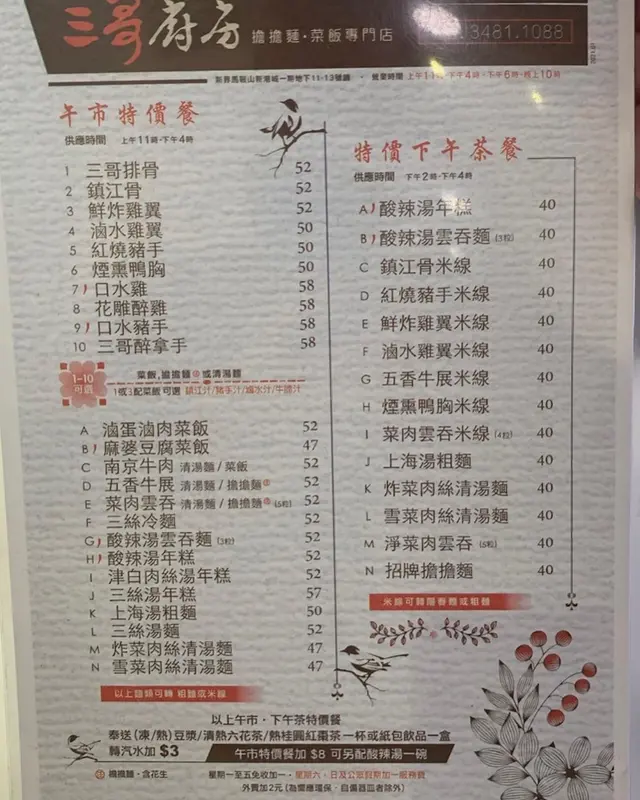 三哥廚房 擔擔麵·菜飯專門店 3481.1088
新界馬鞍山新港城一期地下11-13號鋪 · 營業時間 上午11時-下午4時·下午6時-晚上10時
午市特價餐
供應時間 上午11時-下午4時
1 三哥排骨 52
2 鎮江骨 52
3 鮮炸雞翼 52
4 滷水雞翼 50
5 紅燒豬手 50
6 煙熏鴨胸 50
7 口水雞 58
8 花雕醉雞 58
9 口水豬手 58
10 三哥醉拿手 58
1-10 可選
菜飯,擔擔麵 或清湯麵
1或3配菜飯可選 鎮江汁/豬手汁/滷水汁/牛𦟌汁
A 滷蛋滷肉菜飯 52
B 麻婆豆腐菜飯 47
C 南京牛肉 清湯麵/菜飯 52
D 五香牛展 清湯麵/擔擔麵 52
E 菜肉雲吞 清湯麵/擔擔麵 (5粒) 52
F 三絲冷麵 52
G 酸辣湯雲吞麵 (3粒) 52
H 酸辣湯年糕 52
I 津白肉絲湯年糕 52
J 三絲湯年糕 57
K 上海湯粗麵 50
L 三絲湯麵 52
M 炸菜肉絲清湯麵 47
N 雪菜肉絲清湯麵 47
以上麵類可轉 粗麵或米線
特價下午茶餐
供應時間 下午2時-下午4時
A 酸辣湯年糕 40
B 酸辣湯雲吞麵 (3粒) 40
C 鎮江骨米線 40
D 紅燒豬手米線 40
E 鮮炸雞翼米線 40
F 滷水雞翼米線 40
G 五香牛展米線 40
H 煙熏鴨胸米線 40
I 菜肉雲吞米線 (4粒) 40
J 上海湯粗麵 40
K 炸菜肉絲清湯麵 40
L 雪菜肉絲清湯麵 40
M 淨菜肉雲吞 (5粒) 40
N 招牌擔擔麵 40
米線可轉陽春麵或粗麵
以上午市·下午茶特價餐
奉送(凍/熱)豆漿/清熱六花茶/熱桂圓紅棗茶一杯或紙包飲品一盒
轉汽水加 $3
午市特價餐加 $8 可另配酸辣湯一碗
機機麵·含花生 星期一至五免收加一·星期六、日及公眾假期加一服務費
外賣加2元(為響應環保,自備器皿者除外)